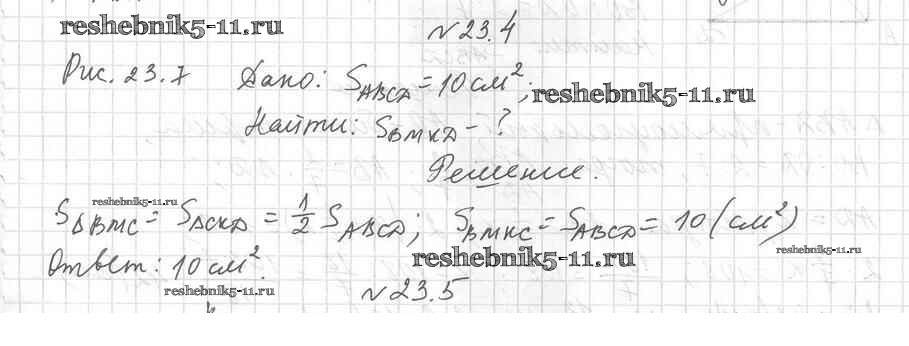 reshebnik5-11.ru
№ 23.4
Рис. 23.7 Дано: S_ABCD = 10 см²;
reshebnik5-11.ru
Найти: S_BMKD - ?
Решение.
reshebnik5-11.ru
S_ΔBMC = S_ΔCKD = 1/2 S_ABCD; S_BMKC = S_ABCD = 10 (см²)
Ответ: 10 см².
reshebnik5-11.ru
reshebnik5-11.ru
reshebnik5-11.ru
№ 23.5